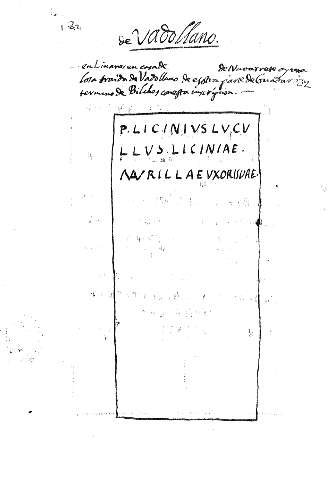 de Vadollano.
en Linares en casa de de Navarrete ay una
losa traida de Vadollano de esotra parte de Guadar
termino de Bilches con esta inscripcion.
P. LICINIVS LVCV
LLVS. LICINIAE.
AVRILLAE VXORI SVAE.